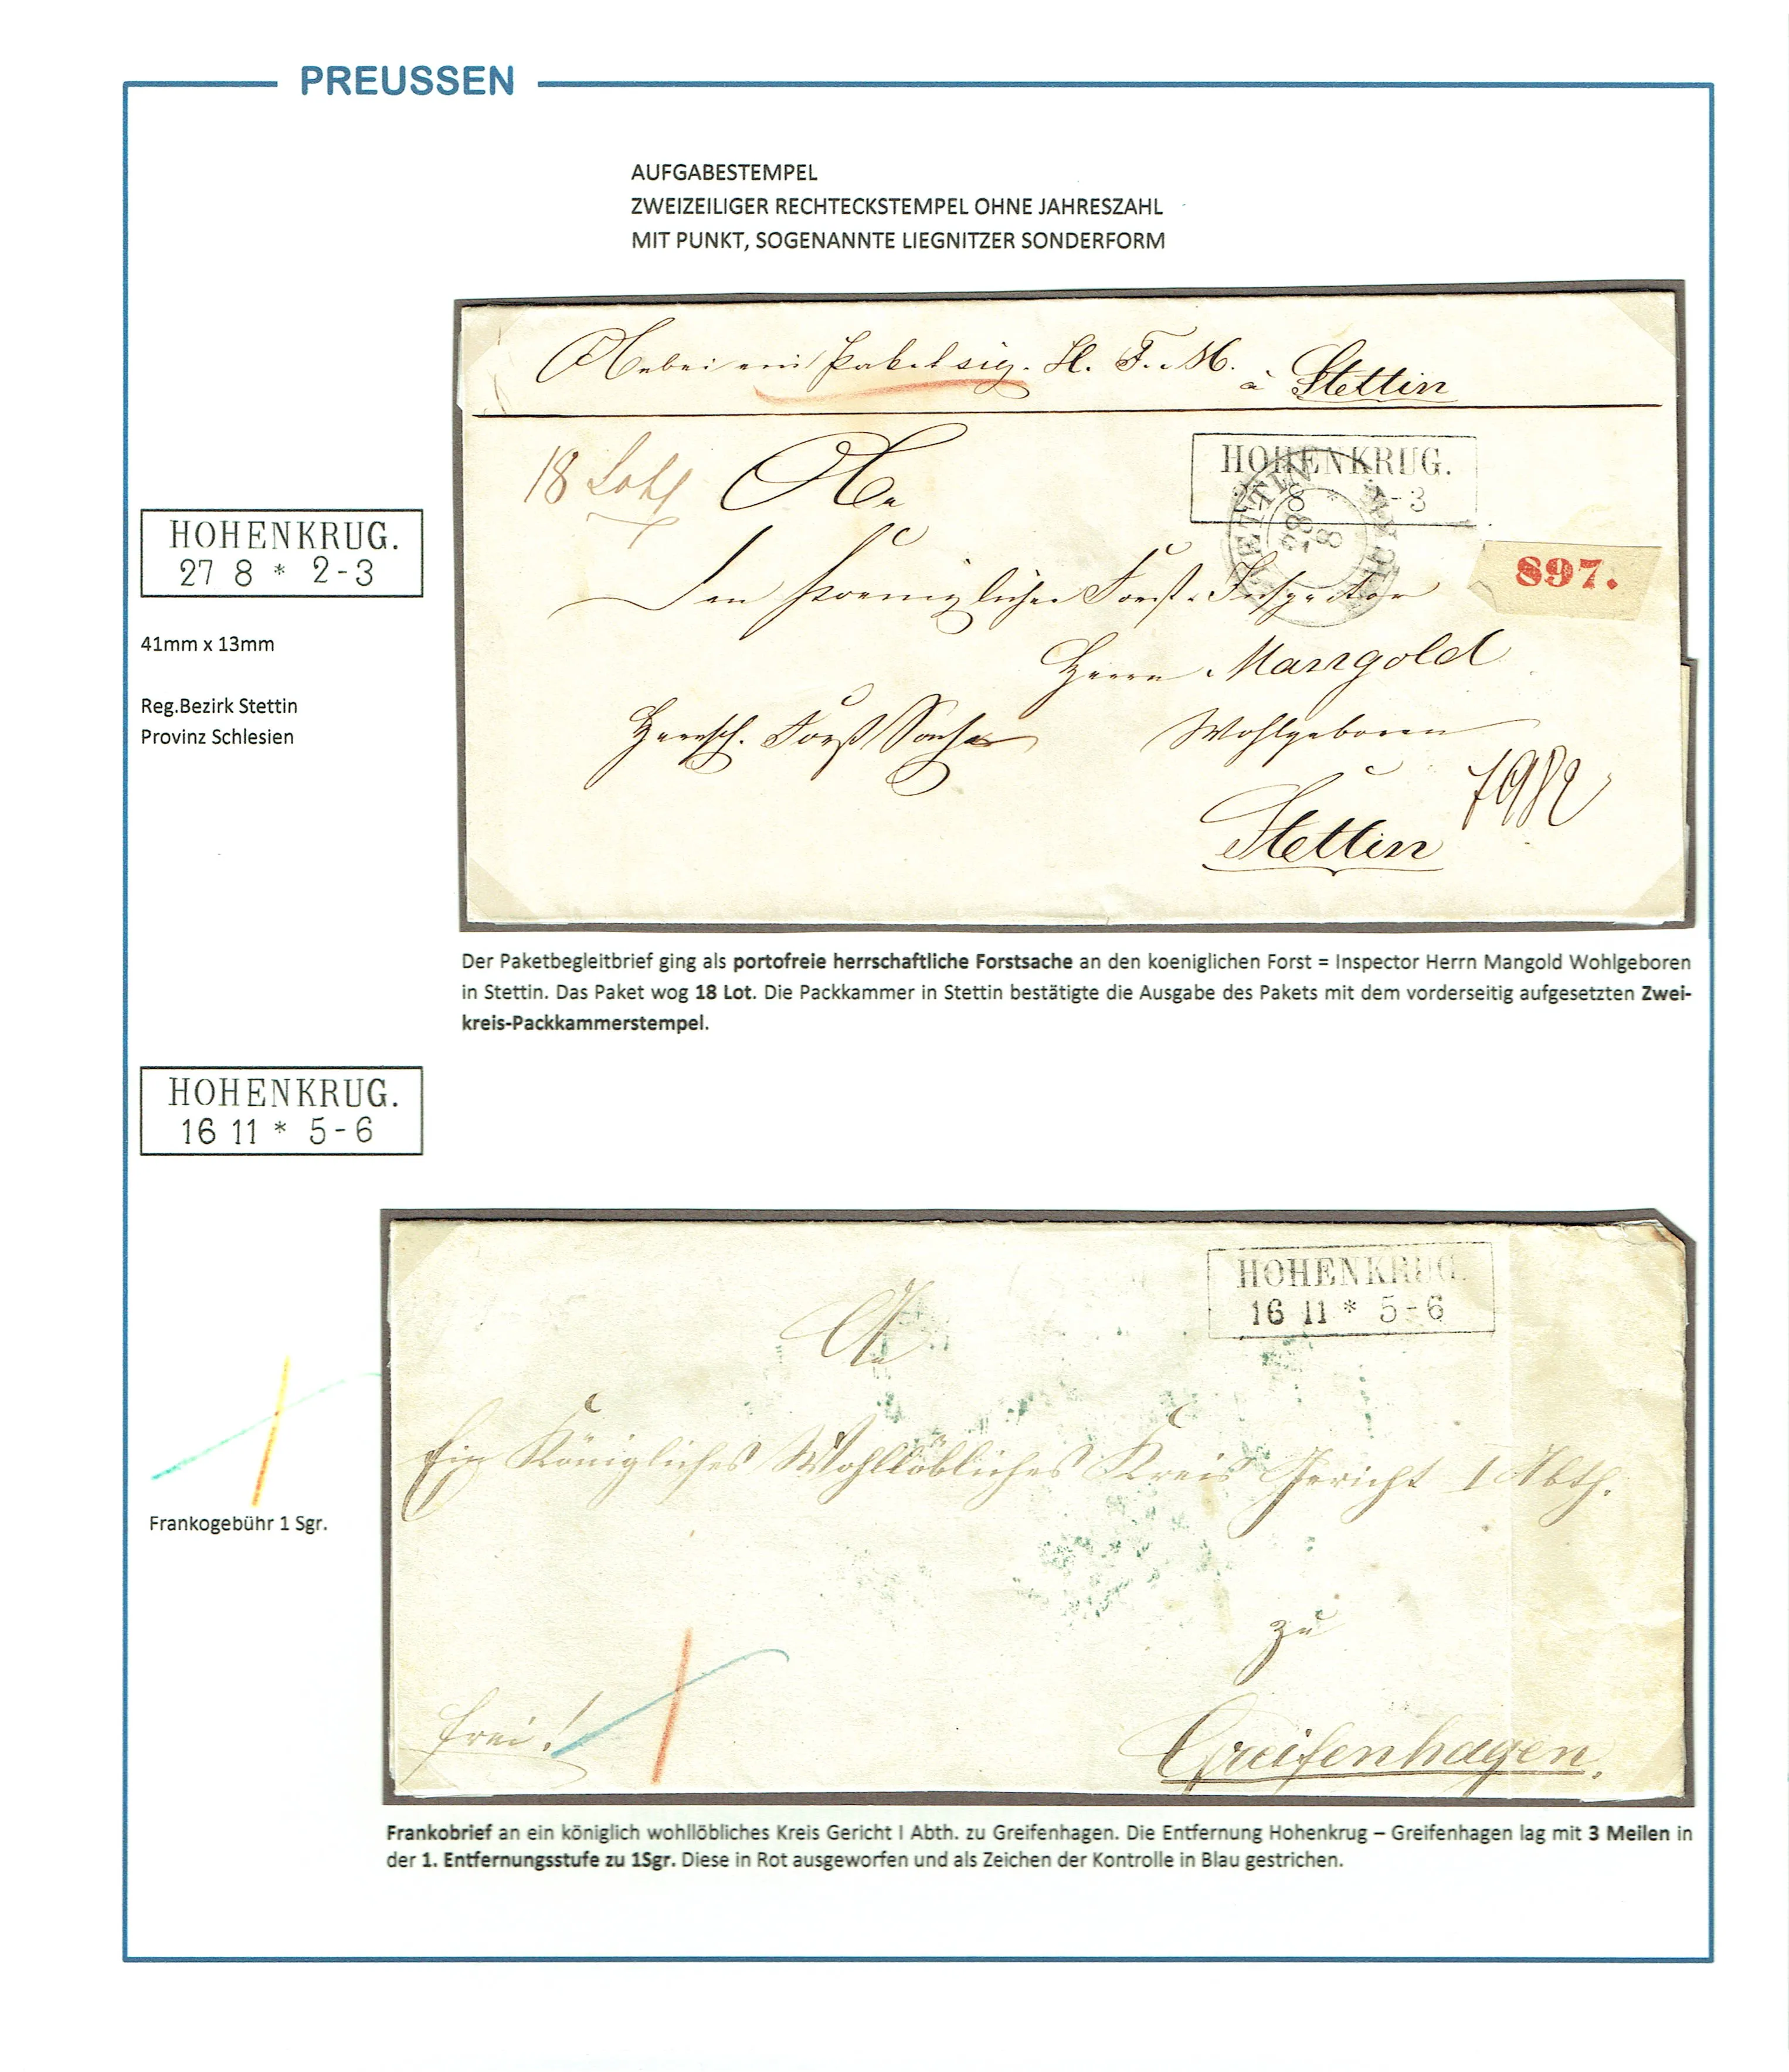 PREUSSEN
AUFGABESTEMPEL
ZWEIZEILIGER RECHTECKSTEMPEL OHNE JAHRESZAHL
MIT PUNKT, SOGENANNTE LIEGNITZER SONDERFORM
Hiebei ein Paket sig. H. F. M. à Stettin
18 Loth
An
HOHENKRUG.
8 * -3
STETTIN
28 8
897.
HOHENKRUG.
27 8 * 2-3
41mm x 13mm
Reg.Bezirk Stettin
Provinz Schlesien
den Koeniglichen Forst=Inspector
Herrn Mangold
Herrsch. Forst Sache
Wohlgeboren
Stettin
Der Paketbegleitbrief ging als portofreie herrschaftliche Forstsache an den koeniglichen Forst = Inspector Herrn Mangold Wohlgeboren
in Stettin. Das Paket wog 18 Lot. Die Packkammer in Stettin bestätigte die Ausgabe des Pakets mit dem vorderseitig aufgesetzten Zwei-
kreis-Packkammerstempel.
HOHENKRUG.
16 11 * 5-6
HOHENKRUG.
16 11 * 5-6
An
Ein Königliches Wohllöbliches Kreis Gericht I Abth.
zu
frei!
Greifenhagen.
Frankogebühr 1 Sgr.
Frankobrief an ein königlich wohllöbliches Kreis Gericht I Abth. zu Greifenhagen. Die Entfernung Hohenkrug – Greifenhagen lag mit 3 Meilen in
der 1. Entfernungsstufe zu 1Sgr. Diese in Rot ausgeworfen und als Zeichen der Kontrolle in Blau gestrichen.